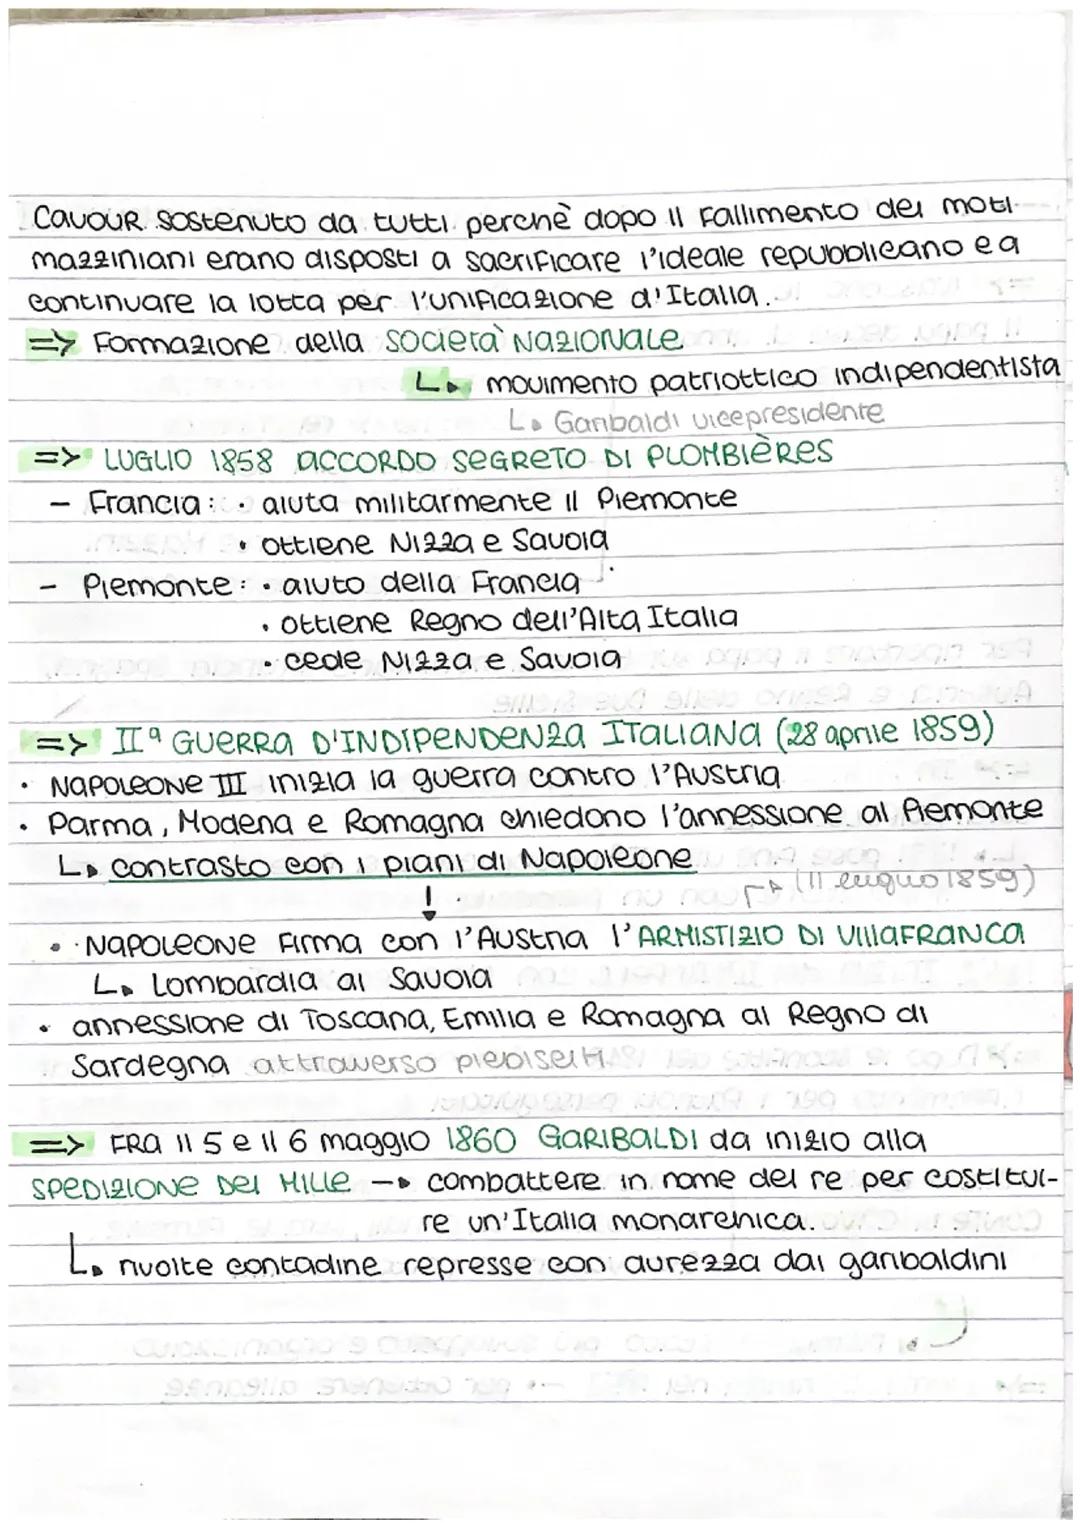 Cavour sostenuto da tutti perchè dopo il fallimento dei moti
mazziniani erano disposti a sacrificare l'ideale repubblicano e a
continuare la lotta per l'unificazione d'Italia.
=> Formazione della Società Nazionale
↳ movimento patriottico indipendentista
↳ Garibaldi vicepresidente
=> LUGLIO 1858 ACCORDO SEGRETO DI PLOMBIÈRES
- Francia: • aiuta militarmente il Piemonte
• ottiene Nizza e Savoia
- Piemonte: • aiuto della Francia
• ottiene Regno dell'Alta Italia
• cede Nizza e Savoia
=> IIª GUERRA D'INDIPENDENZA ITALIANA (28 aprile 1859)
• NAPOLEONE III inizia la guerra contro l'Austria
• Parma, Modena e Romagna chiedono l'annessione al Piemonte
↳ contrasto con i piani di Napoleone
↓ ↱ (11 luglio 1859)
• NAPOLEONE firma con l'Austria l'ARMISTIZIO DI VILLAFRANCA
↳ Lombardia ai Savoia
• annessione di Toscana, Emilia e Romagna al Regno di
Sardegna attraverso plebisciti
=> FRA il 5 e il 6 maggio 1860 GARIBALDI da inizio alla
SPEDIZIONE DEI MILLE → combattere in nome del re per costitui-
re un'Italia monarchica.
↳ rivolte contadine represse con durezza dai garibaldini